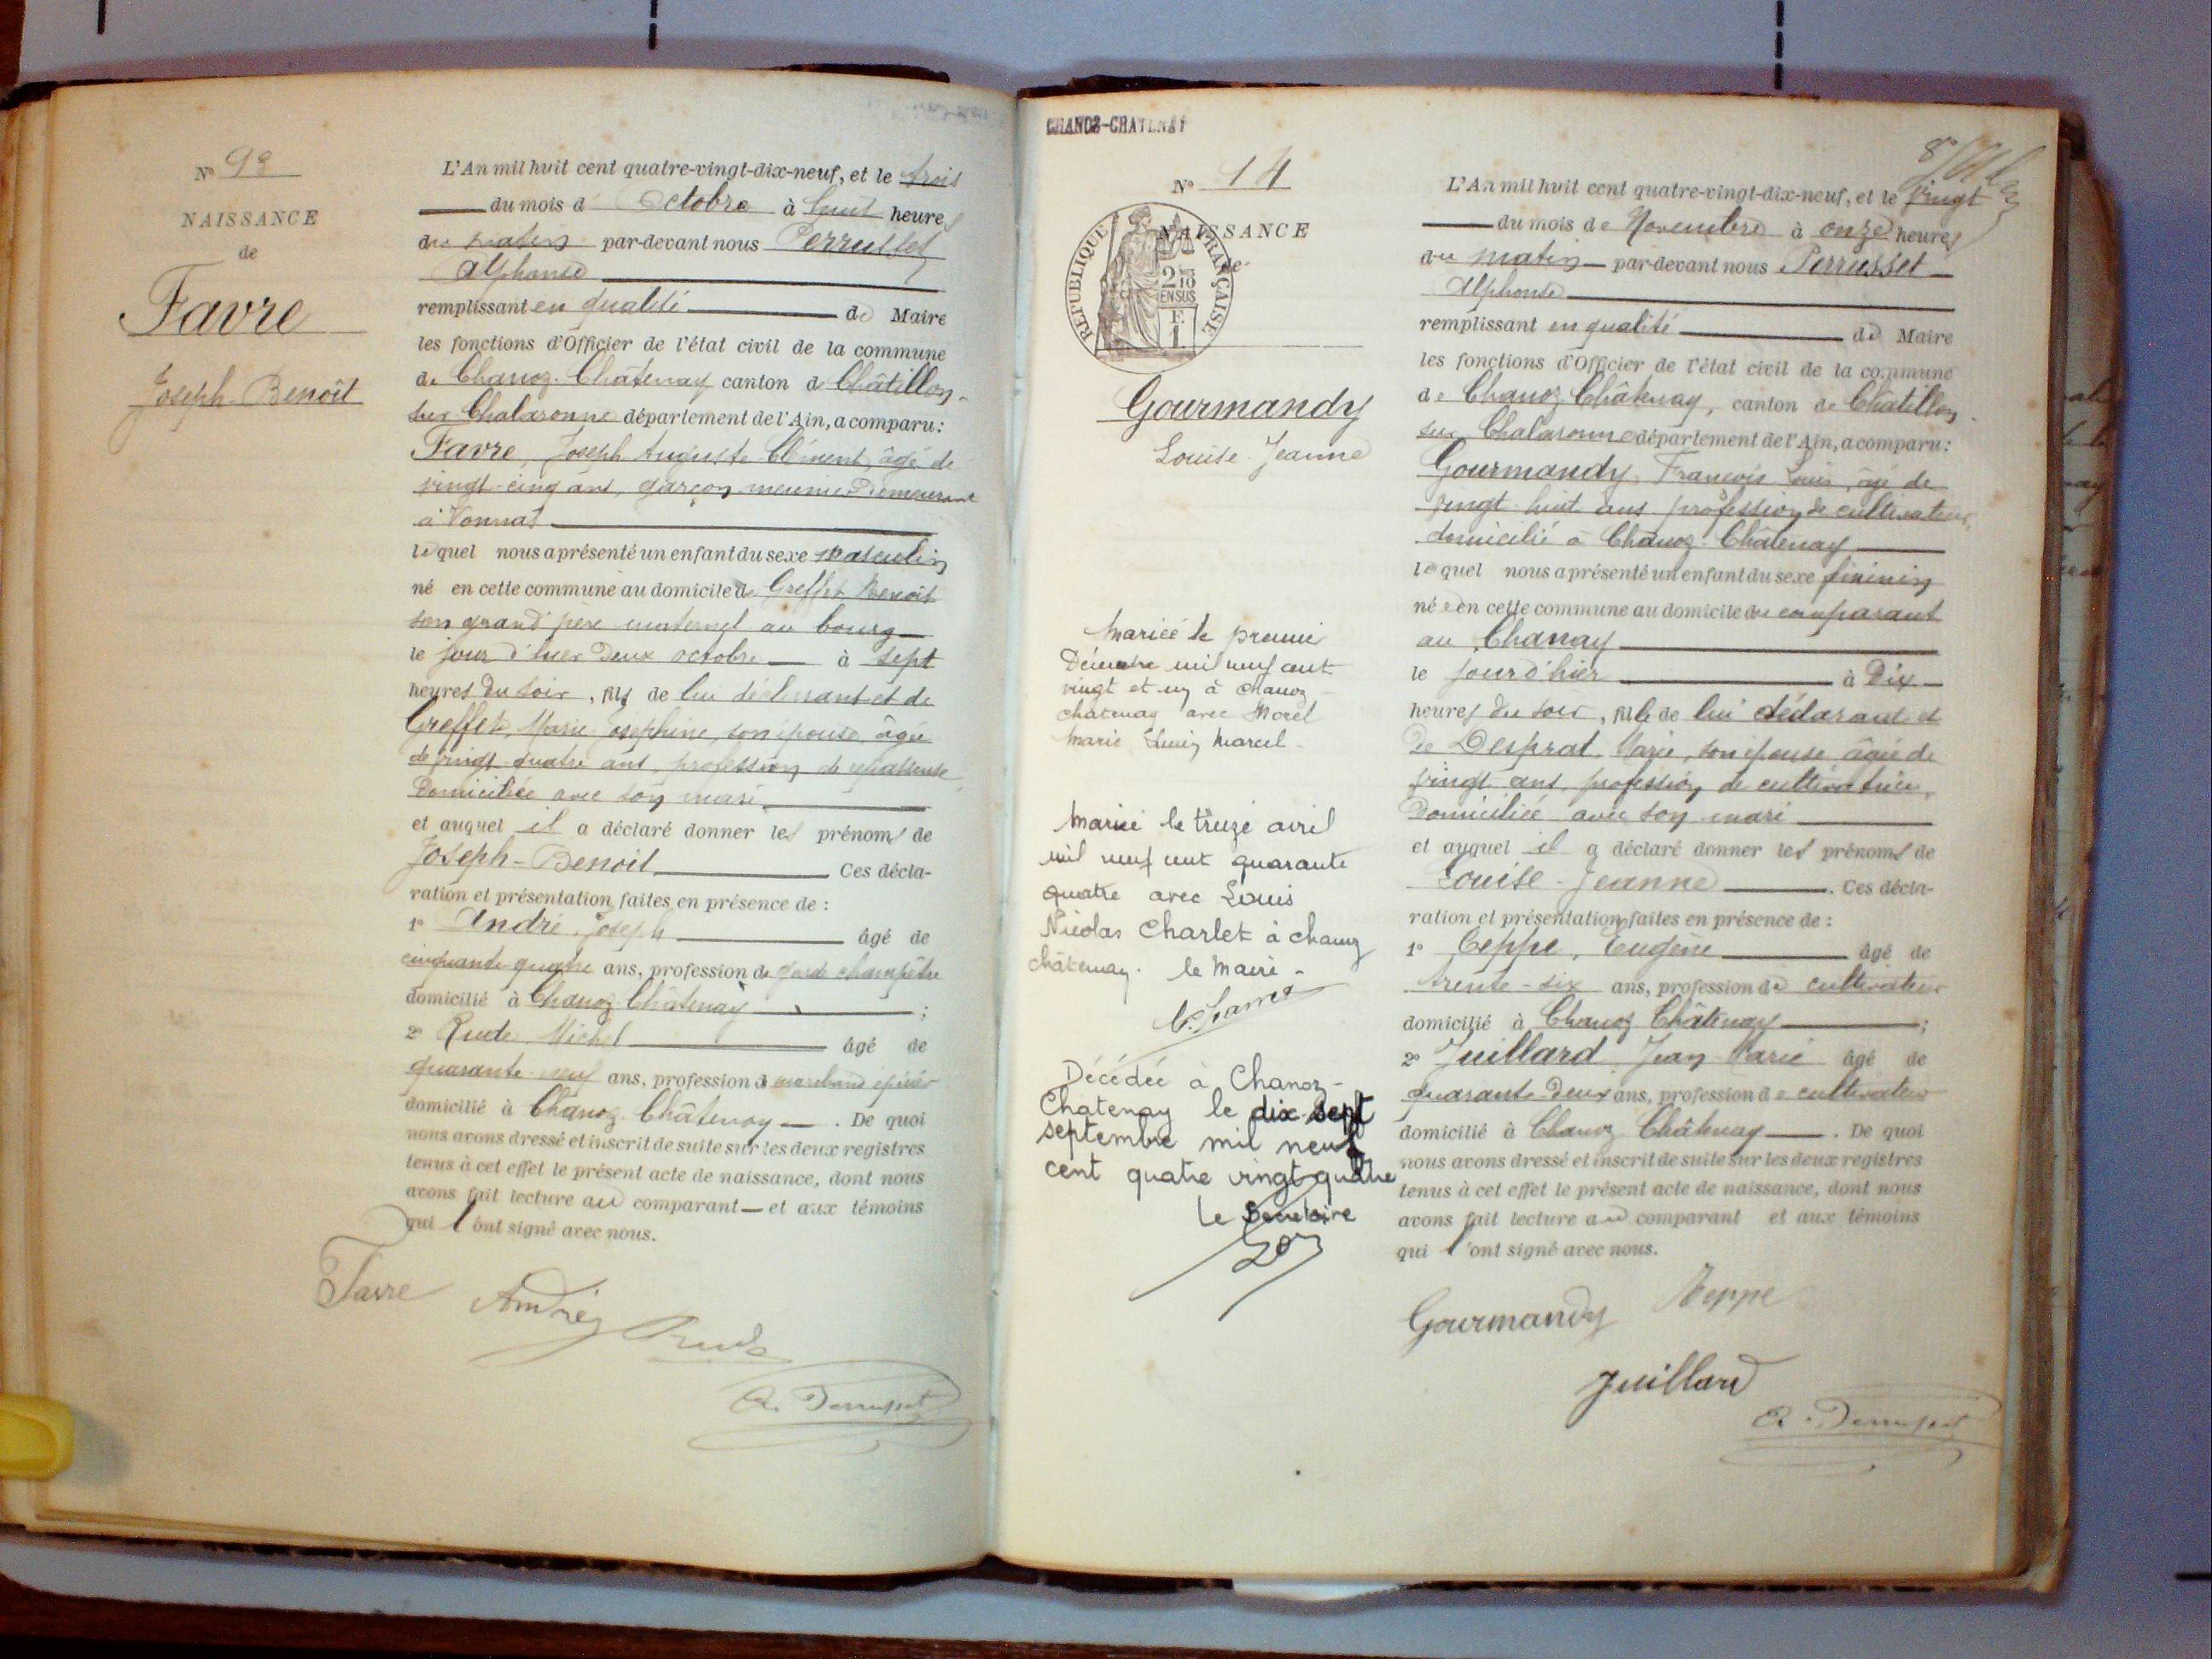 Nº 93
NAISSANCE
de
Favre
Joseph-Benoît
L'An mil huit cent quatre-vingt-dix-neuf, et le trois
du mois d' Octobre à huit heures
du matin par-devant nous Perrusset
Alphonse
remplissant en qualité de Maire
les fonctions d'Officier de l'état civil de la commune
de Chanoz-Châtenay canton de Châtillon-
sur Chalaronne département de l'Ain, a comparu :
Favre, Joseph Auguste Clément, âgé de
vingt-cinq ans, garçon meunier demeurant
à Vonnas
lequel nous a présenté un enfant du sexe masculin
né en cette commune au domicile de Greffet Benoît
son grand'père maternel au bourg
le jour d'hier deux octobre à sept
heures du soir, fils de lui déclarant et de
Greffet, Marie Joséphine, son épouse, âgée
de vingt-quatre ans, profession de repasseuse
domiciliée avec son mari
et auquel il a déclaré donner les prénoms de
Joseph-Benoit Ces décla-
ration et présentation faites en présence de :
1º André, Joseph âgé de
cinquante quatre ans, profession de garde champêtre
domicilié à Chanoz-Châtenay ;
2º Rude Michel âgé de
quarante-neuf ans, profession de marchand épicier
domicilié à Chanoz-Châtenay. De quoi
nous avons dressé et inscrit de suite sur les deux registres
tenus à cet effet le présent acte de naissance, dont nous
avons fait lecture au comparant et aux témoins
qui l'ont signé avec nous.
Favre André Rude
A. Perrusset
CHANOZ-CHATENAY
Nº 14
NAISSANCE
de
RÉPUBLIQUE FRANÇAISE
2/10
EN SUS
F.
1
Gourmandy
Louise-Jeanne
Mariée le premier
Décembre mil neuf cent
vingt et un à Chanoz
chatenay avec Morel
Marie Louis Marcel
Mariée le treize avril
mil neuf cent quarante
quatre avec Louis
Nicolas Charlet à chanoz
châtenay. le Maire
Décédée à Chanoz-
Chatenay le dix-sept
septembre mil neuf
cent quatre vingt quatre
Le Secrétaire
L'An mil huit cent quatre-vingt-dix-neuf, et le vingt
du mois de Novembre à onze heures
du matin par-devant nous Perrusset
Alphonse
remplissant en qualité de Maire
les fonctions d'Officier de l'état civil de la commune
de Chanoz Châtenay, canton de Chatillon
sur Chalaronne département de l'Ain, a comparu :
Gourmandy, François Louis, âgé de
vingt-huit ans profession de cultivateur
domicilié à Chanoz-Châtenay
lequel nous a présenté un enfant du sexe féminin
née en cette commune au domicile du comparant
au Chanay
le jour d'hier à Dix
heures du soir, fille de lui déclarant et
de Desprat, Marie, son épouse âgée de
vingt ans, profession de cultivatrice,
domiciliée avec son mari
et auquel il a déclaré donner les prénoms de
Louise-Jeanne. Ces décla-
ration et présentation faites en présence de :
1º Ceppe, Eugène âgé de
trente-six ans, profession de cultivateur
domicilié à Chanoz Châtenay ;
2º Juillard Jean-Marie âgé de
quarante-deux ans, profession de cultivateur
domicilié à Chanoz Châtenay. De quoi
nous avons dressé et inscrit de suite sur les deux registres
tenus à cet effet le présent acte de naissance, dont nous
avons fait lecture au comparant et aux témoins
qui l'ont signé avec nous.
Gourmandy Ceppe
Juillard
A. Perrusset